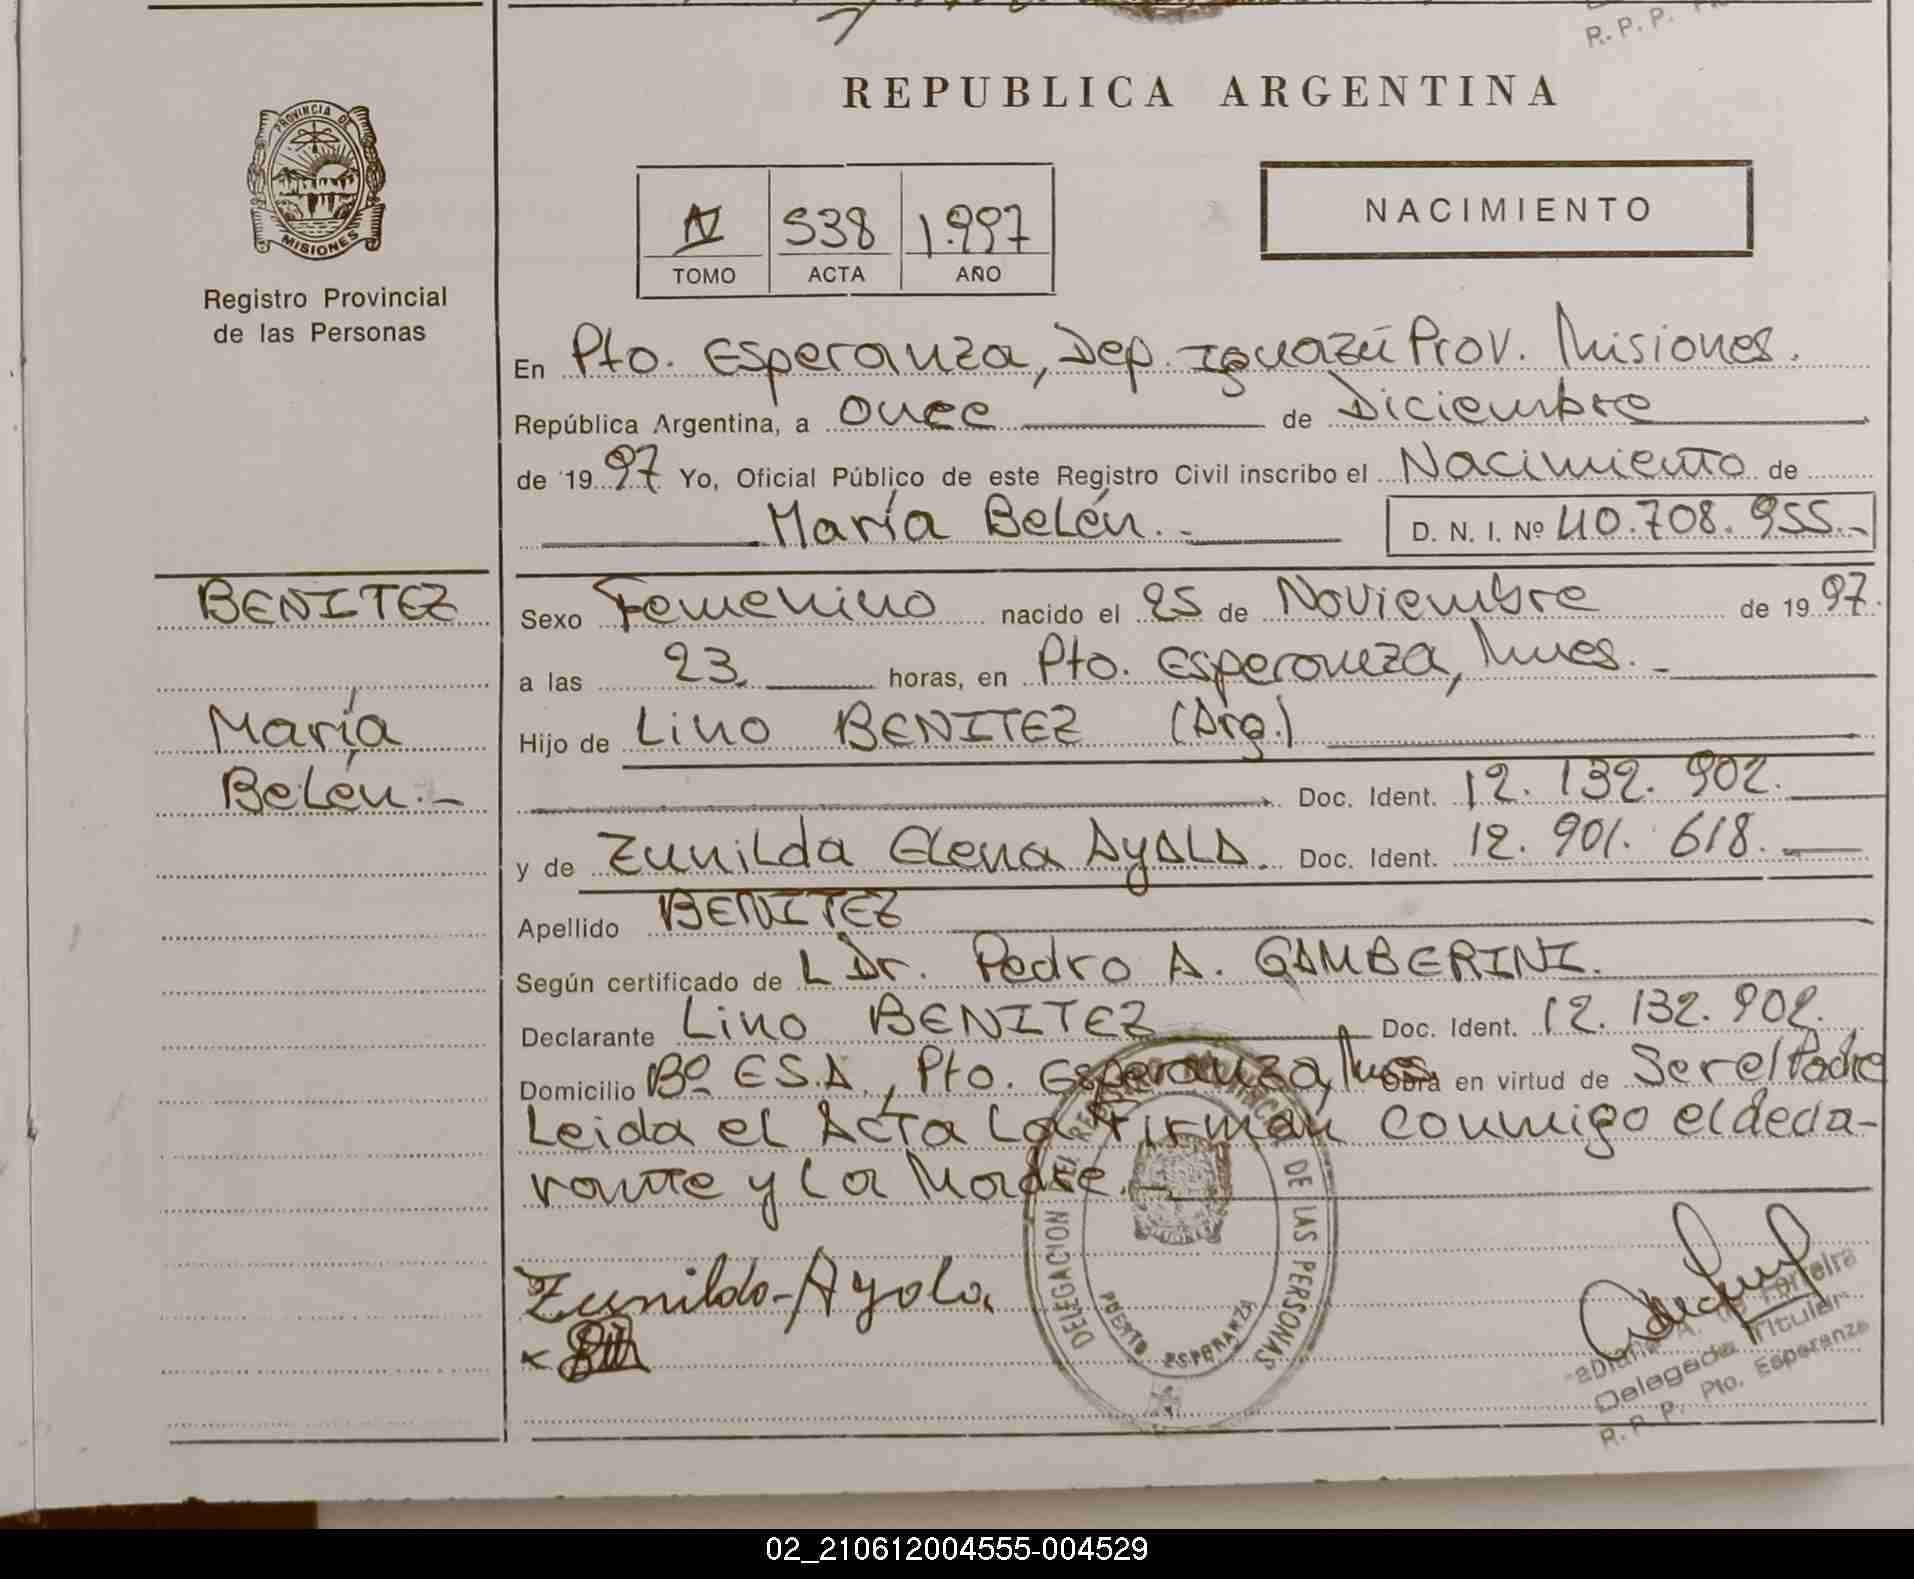 R. P. P.
REPUBLICA ARGENTINA
PROVINCIA DE
MISIONES
Registro Provincial
de las Personas
538 1.997
TOMO ACTA AÑO
NACIMIENTO
En Pto. Esperanza, Dep. Iguazú Prov. Misiones.
República Argentina, a once de Diciembre
de 1997 Yo, Oficial Público de este Registro Civil inscribo el Nacimiento de
María Belén.- D. N. I. Nº 40.708.955.-
BENITEZ
María
Belén.-
Sexo Femenino nacido el 25 de Noviembre de 1997.
a las 23. horas, en Pto. Esperanza, Mnes.-
Hijo de Lino BENITEZ (Arg.)
Doc. Ident. 12.132.902.
y de Zunilda Elena AyALA. Doc. Ident. 12.901.618.
Apellido BENITEZ
Según certificado de L Dr. Pedro A. GAMBERINI.
Declarante Lino BENITEZ Doc. Ident. 12.132.902.
Domicilio Bº E.S.A., Pto. Esperanza, Mnes. Obra en virtud de Ser el Padre
Leida el Acta La Firman conmigo el decla-
rante y La Madre.-
DELEGACION DEL REGISTRO PROVINCIAL DE LAS PERSONAS
PUERTO ESPERANZA
Zunilda-Ayala
A. Ferreira
Delegada Titular
R. P. P. Pto. Esperanza
02_210612004555-004529